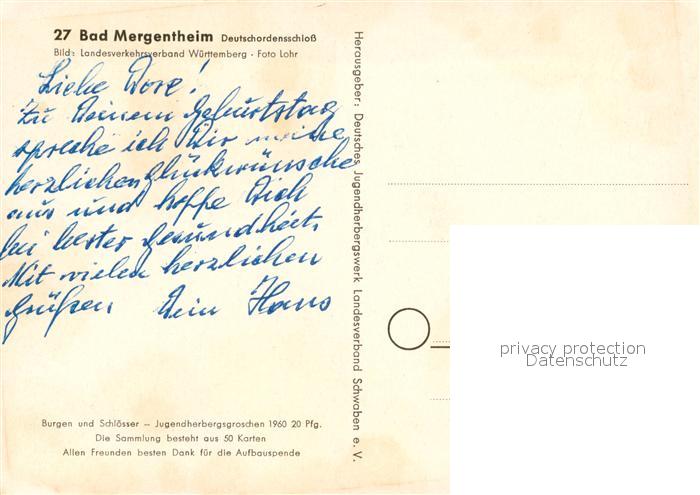 27 Bad Mergentheim Deutschordensschloß
Bild: Landesverkehrsverband Württemberg · Foto Lohr
Liebe Dore!
Zu Deinem Geburtstag
spreche ich Dir meine
herzlichen Glückwünsche
aus und hoffe Dich
bei bester Gesundheit.
Mit vielen herzlichen
Grüßen Dein Hans
Burgen und Schlösser – Jugendherbergsgroschen 1960 20 Pfg.
Die Sammlung besteht aus 50 Karten
Allen Freunden besten Dank für die Aufbauspende
Herausgeber: Deutsches Jugendherbergswerk Landesverband Schwaben e. V.
privacy protection
Datenschutz